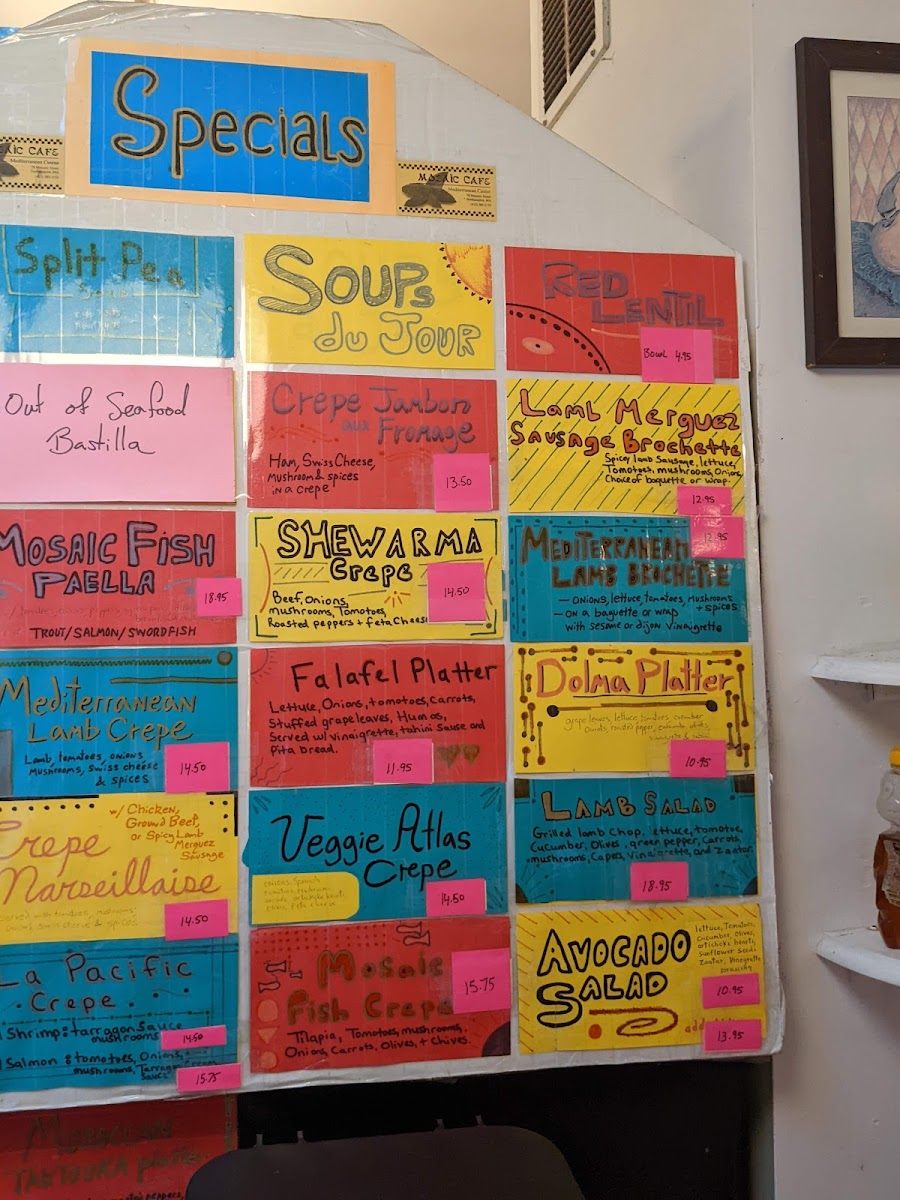 Specials
MOSAIC CAFE
Mediterranean Cuisine
Split Pea
Soups
du Jour
Red
Lentil
Bowl 4.95
Out of Seafood
Bastilla
Crepe Jambon
aux Fromage
Ham, Swiss Cheese,
Mushroom & spices
in a crepe
13.50
Lamb Merguez
Sausage Brochette
Spicy lamb Sausage, lettuce,
Tomatoes, mushrooms, Onions
Choice of baguette or wrap.
12.95
Mosaic Fish
Paella
18.95
TROUT/SALMON/SWORDFISH
SHEWARMA
Crepe
14.50
Beef, Onions,
mushrooms, Tomatoes,
Roasted peppers + feta Cheese
12.95
Mediterranean
Lamb Brochette
- Onions, lettuce, tomatoes, Mushrooms
+ spices
- on a baguette or wrap
with sesame or dijon Vinaigrette
Mediterranean
Lamb Crepe
Lamb, tomatoes, onions
Mushrooms, swiss cheese
& spices
14.50
Falafel Platter
Lettuce, Onions, tomatoes, Carrots,
Stuffed grapeleaves, Humos,
Served w/ vinaigrette, tahini Sauce and
Pita bread.
11.95
Dolma Platter
grape leaves, lettuce, tomatoes, cucumber
10.95
w/ Chicken,
Ground Beef,
or Spicy Lamb
Merguez
Sausage
Crepe
Marseillaise
14.50
Veggie Atlas
Crepe
14.50
Lamb Salad
Grilled lamb Chop, lettuce, tomatoe,
Cucumber, Olives, green pepper, Carrots,
mushrooms, Capers, Vinaigrette, and Zaatar.
18.95
La Pacific
Crepe
Shrimp: tarragon Sauce
mushrooms
14.50
Salmon: tomatoes, Onions,
mushrooms, Tarragon Cream
Sauce
15.75
Mosaic
Fish Crepe
15.75
Tilapia, Tomatoes, mushrooms,
Onions, Carrots, Olives, + Chives.
Avocado
Salad
lettuce, Tomatoes,
cucumber, Olives,
artichoke hearts,
sunflower seeds
Zaatar, Vinaigrette
10.95
add
13.95
platter